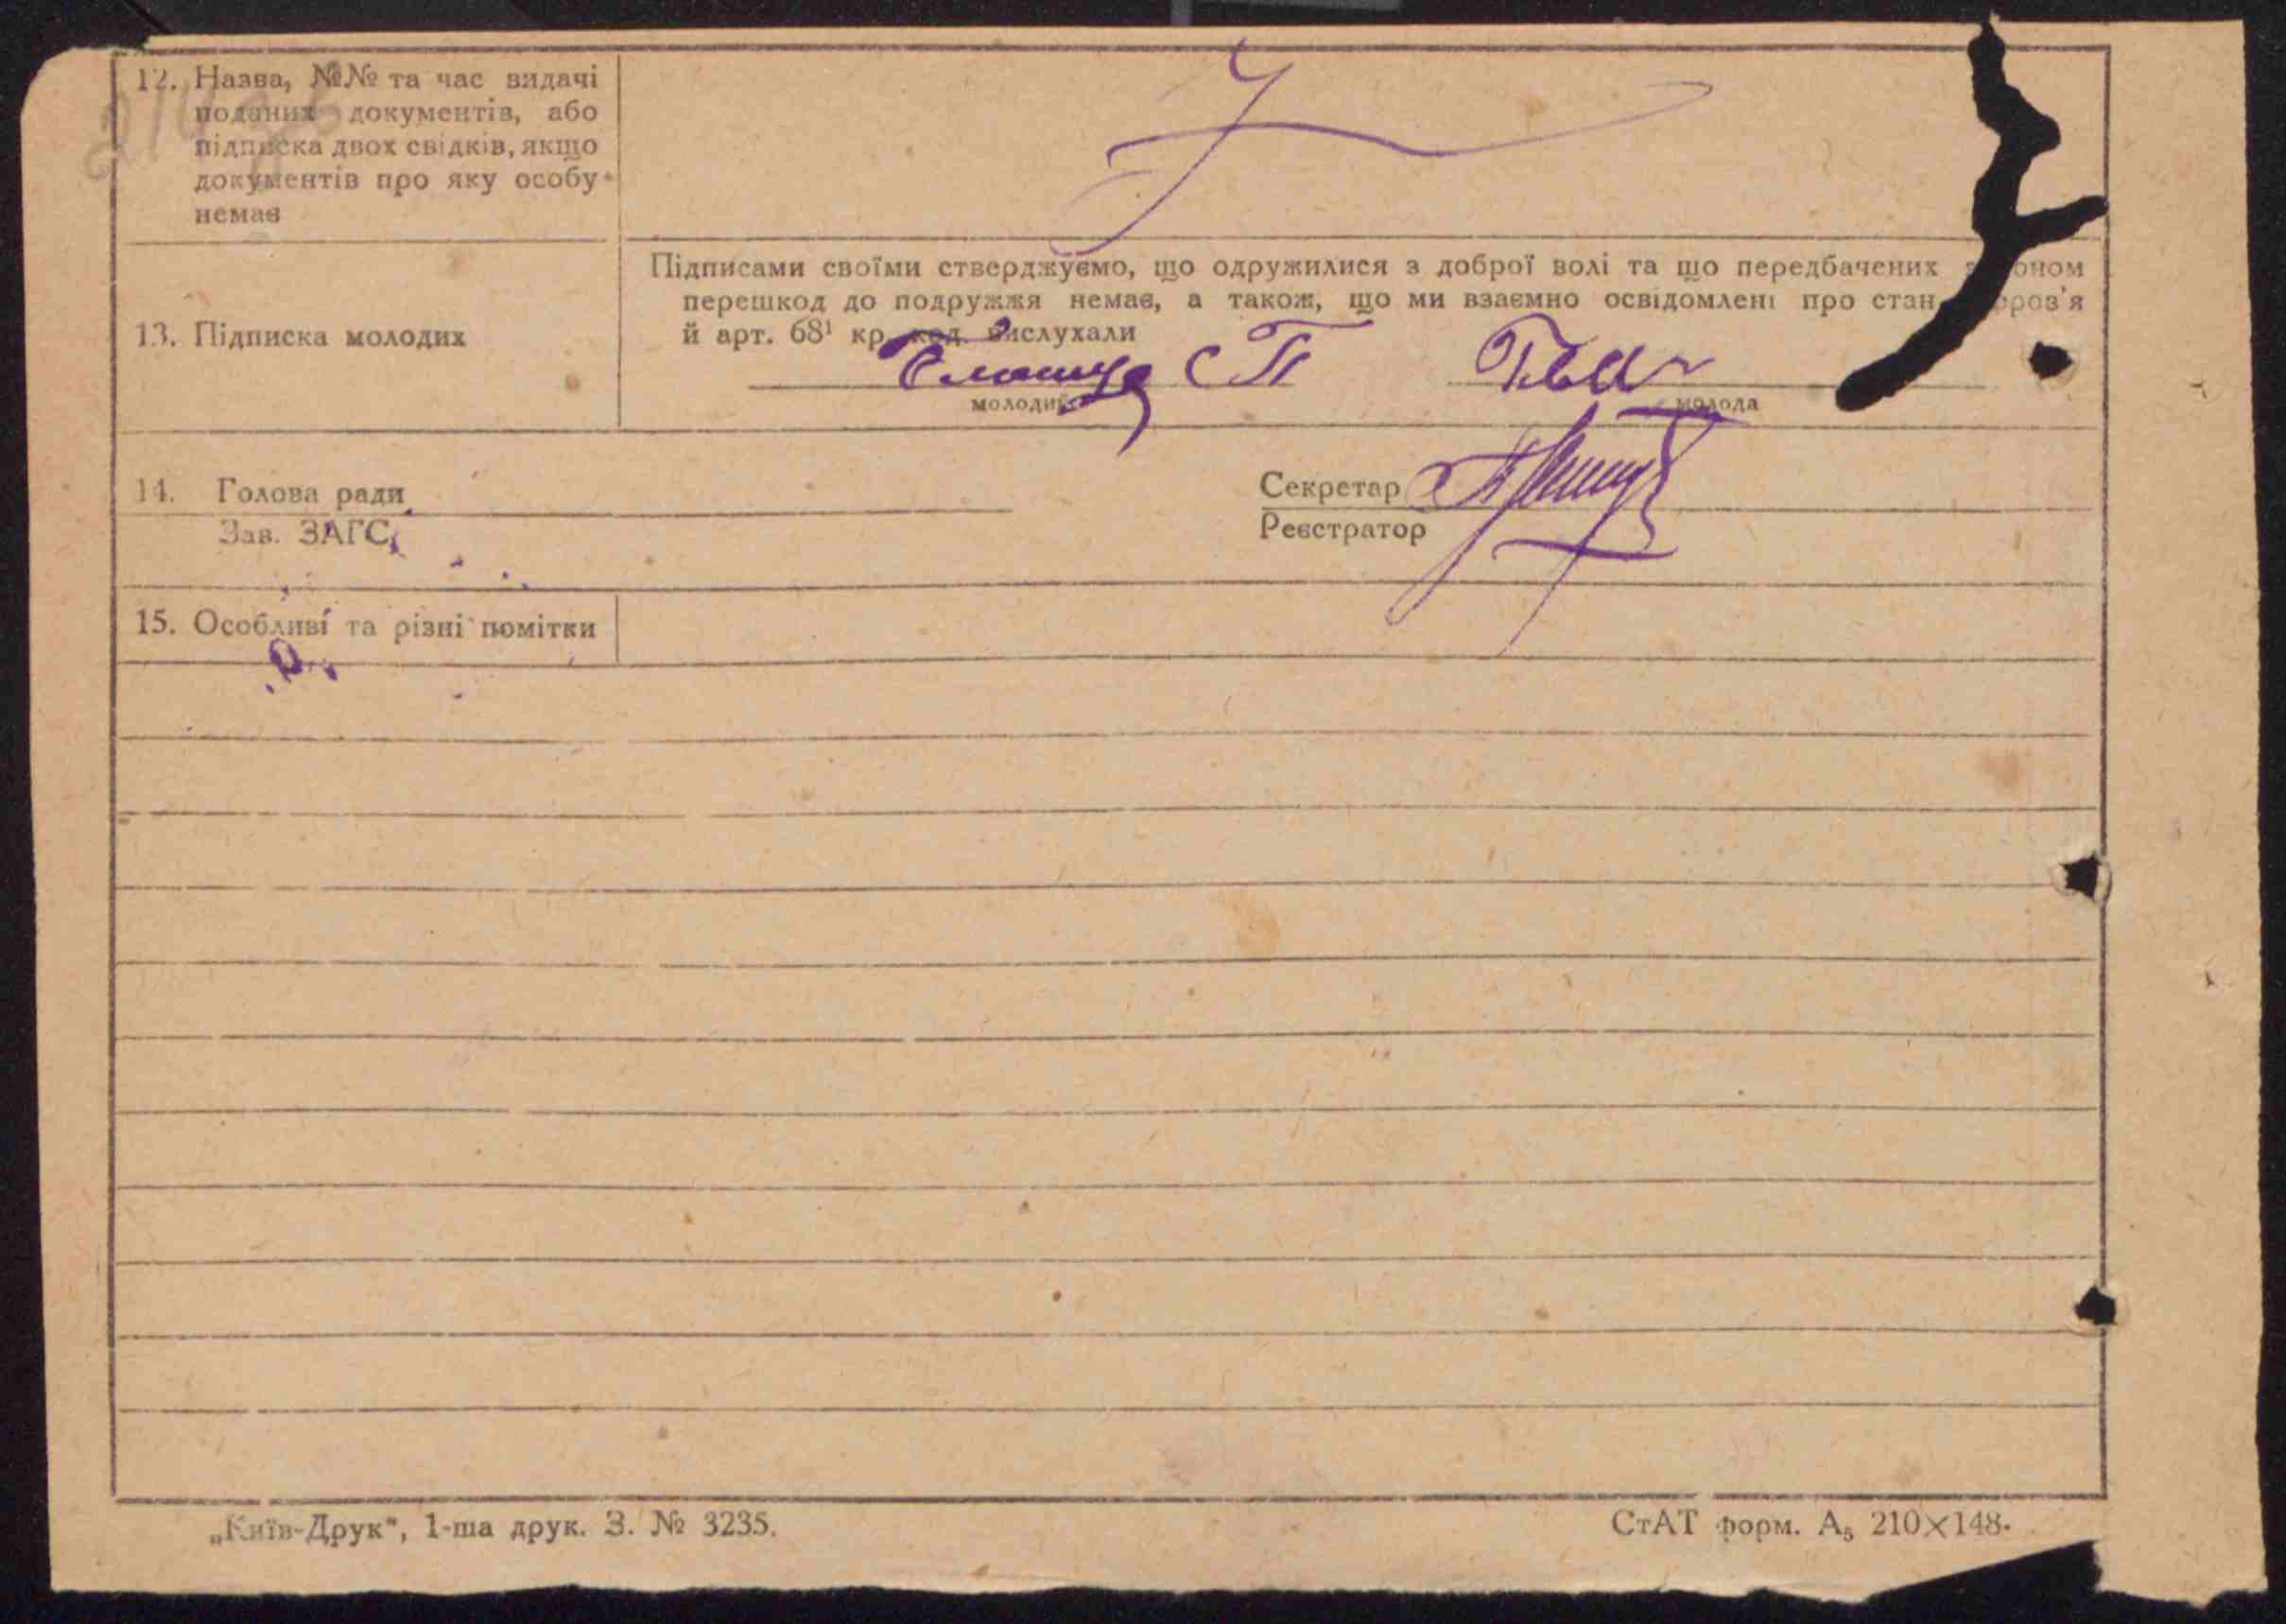 12. Назва, №№ та час видачі
поданих документів, або
підписка двох свідків, якщо
документів про яку особу
немає
13. Підписка молодих
Підписами своїми стверджуємо, що одружилися з доброї волі та що передбачених
перешкод до подружжя немає, а також, що ми взаємно освідомлені про стан
й арт. 68¹ кр. код. вислухали
молодий
молода
14. Голова ради
Зав. ЗАГС
Секретар
Реєстратор
15. Особливі та різні помітки
„Київ-Друк", 1-ша друк. З. № 3235.
СтАТ форм. А₅ 210×148.